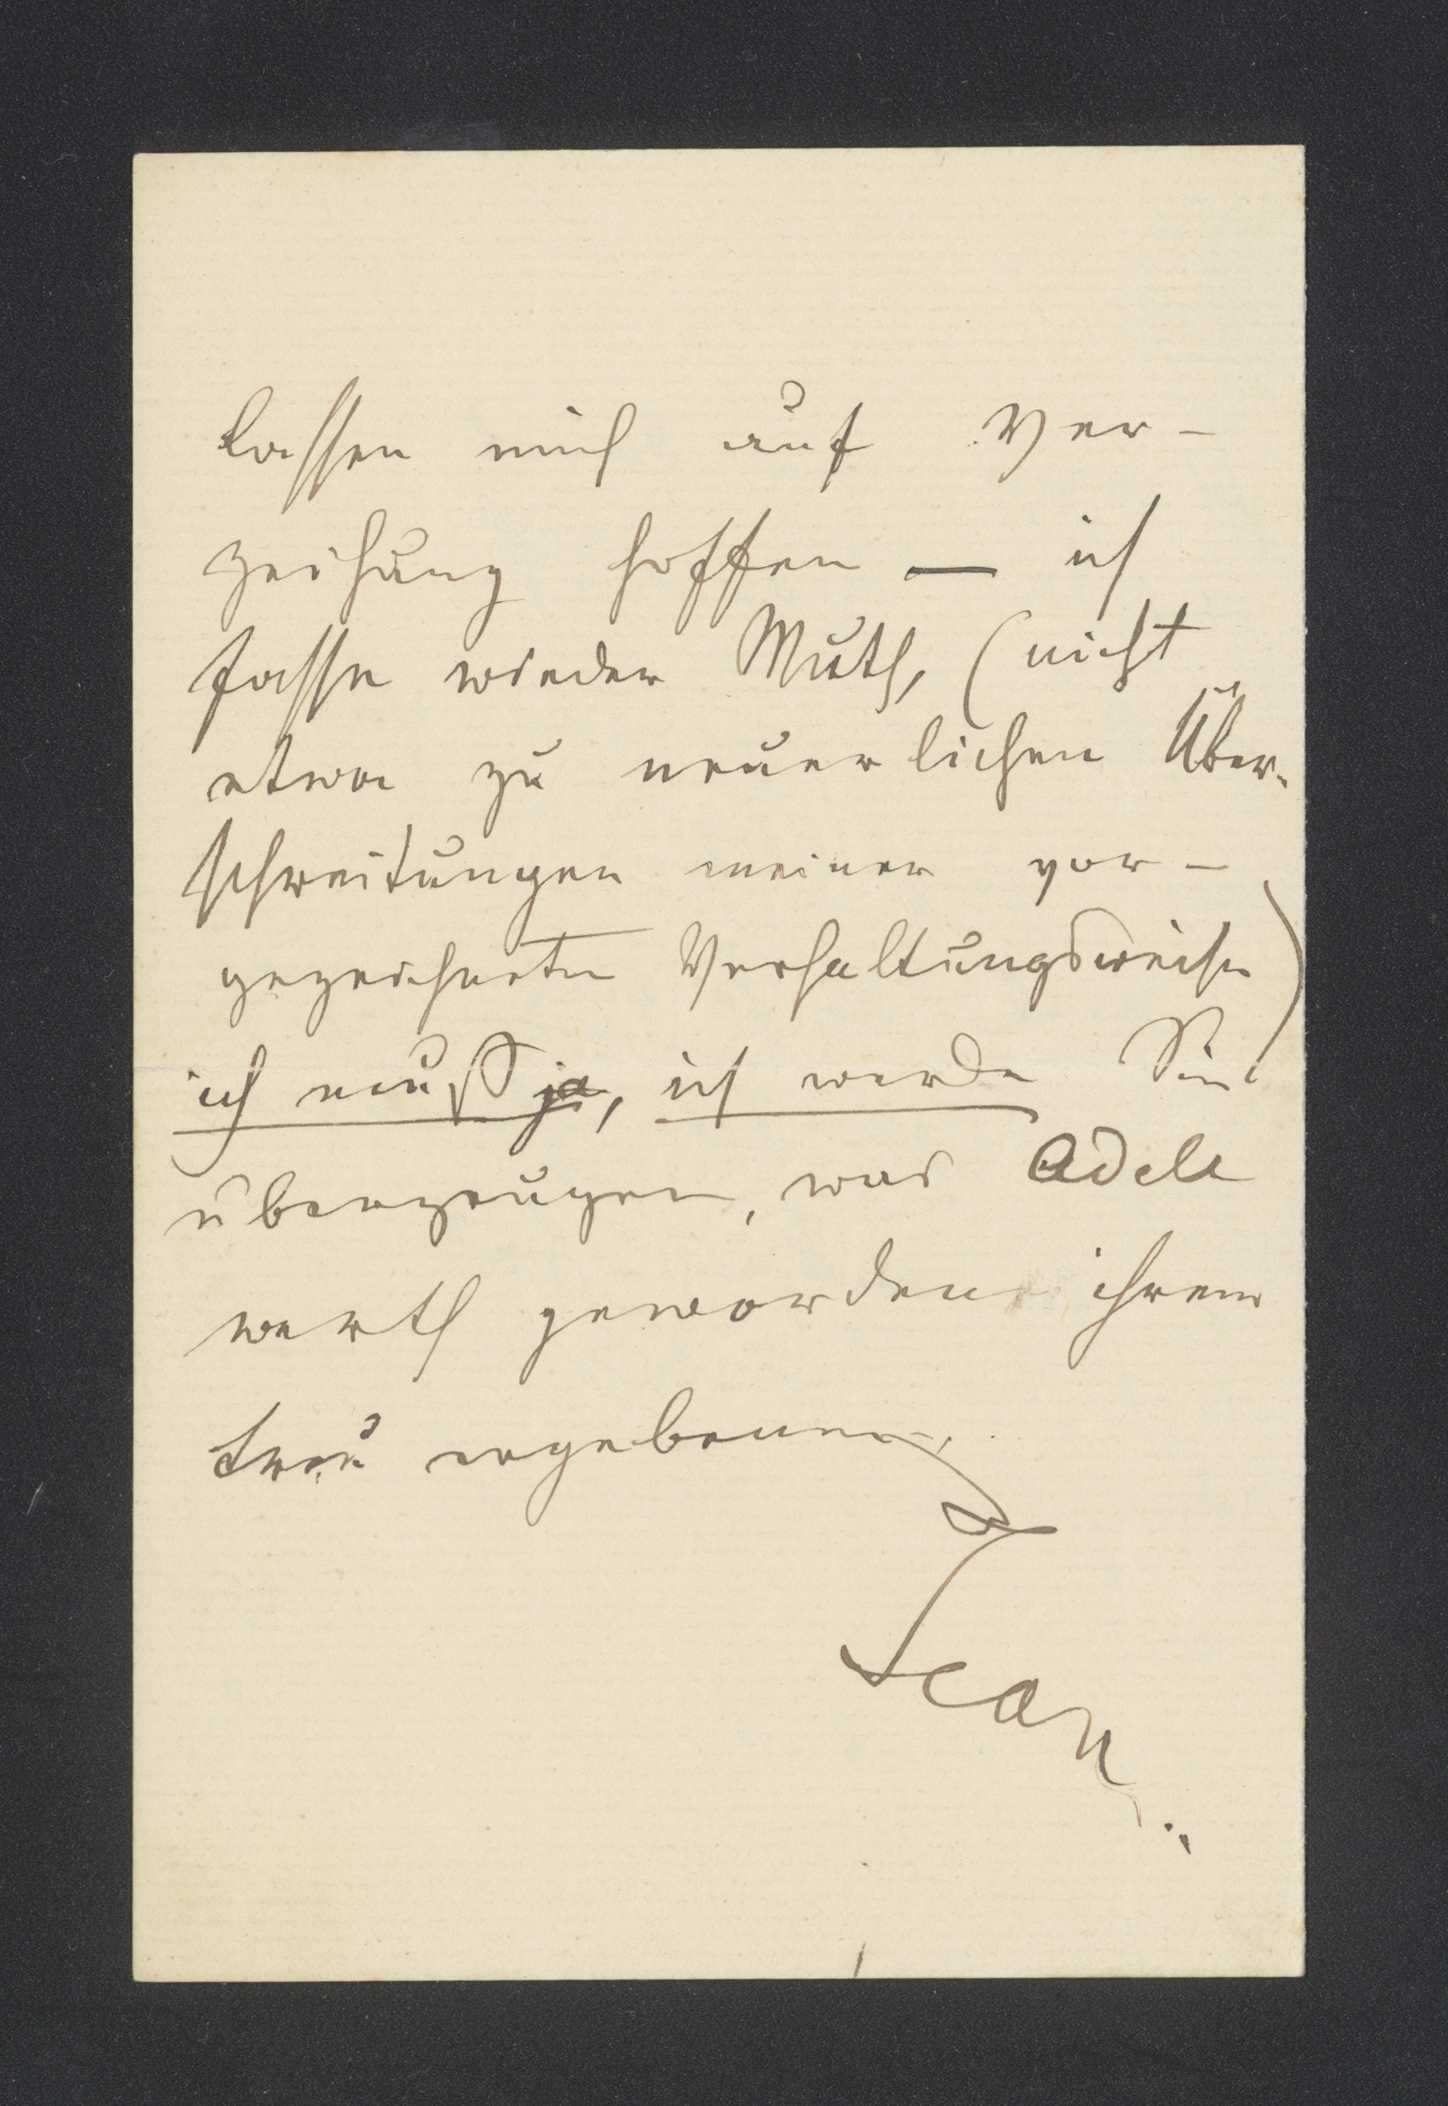 lassen mich auf Ver-
zeihung hoffen — ich
fasse wieder Muth, (nicht
etwa zu neuerlichen Über-
schreitungen meiner vor-
gezeichneten Verhaltungsweise)
ich muß ja, ich werde Sie
überzeugen, was Adele
werth geworden ihrem
treu ergebenen
Jean.